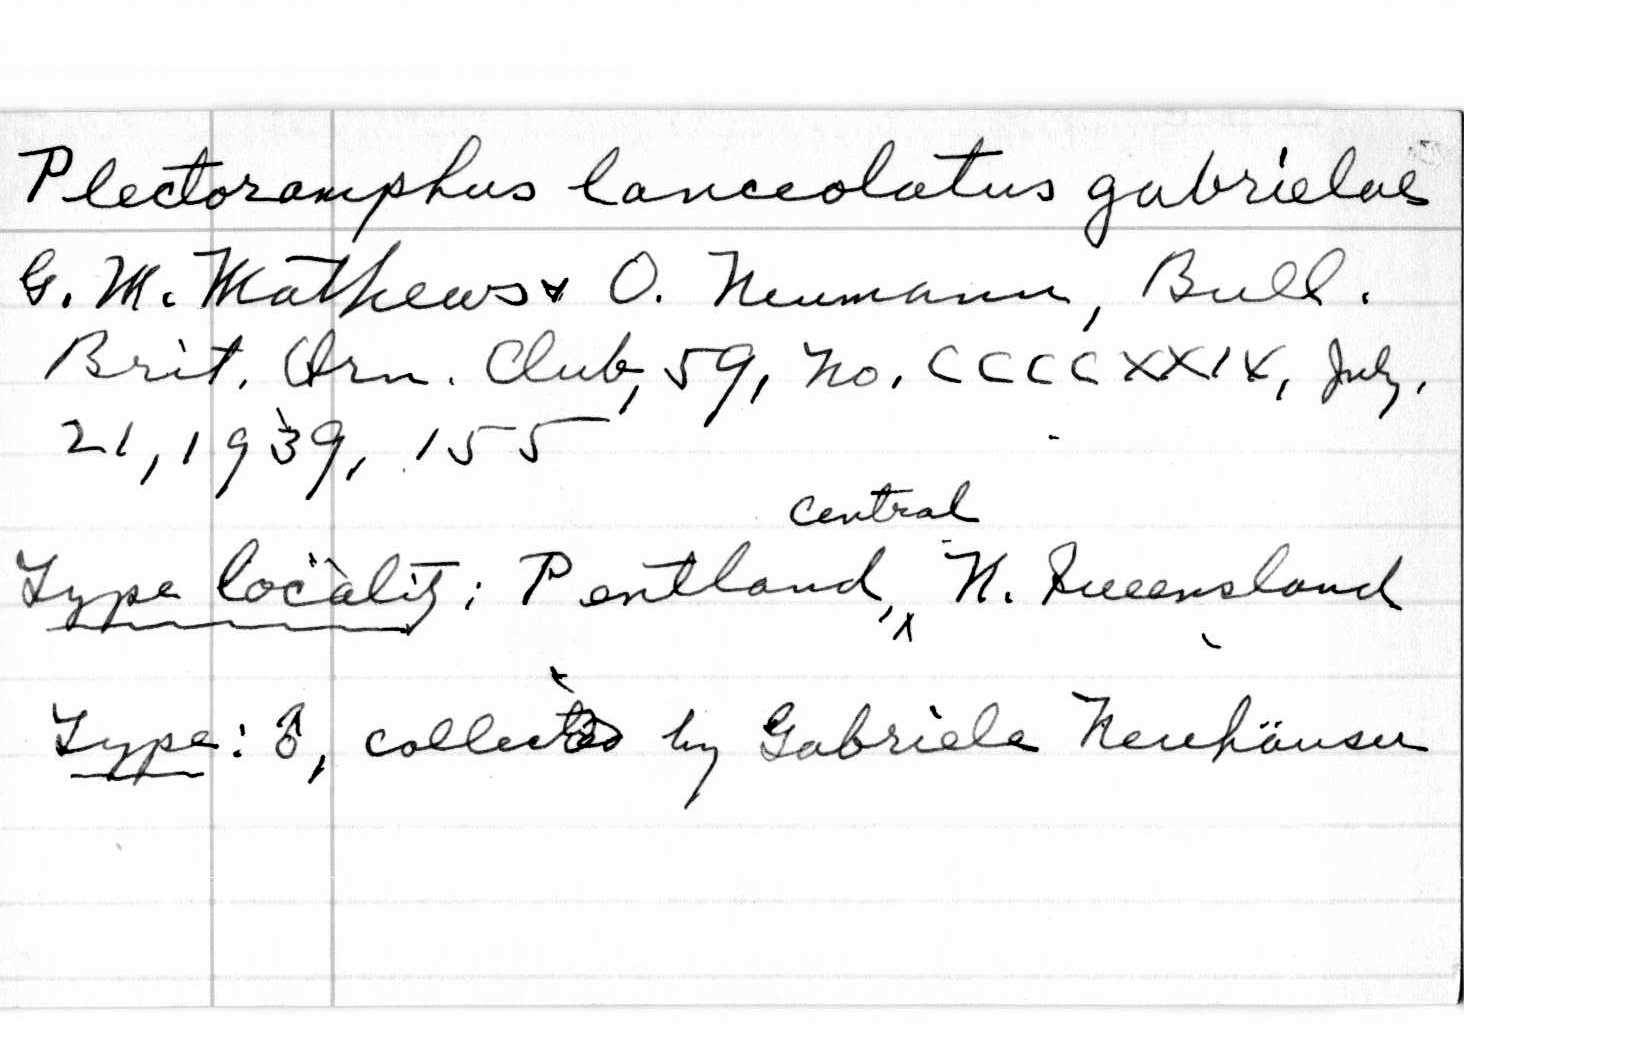 Plectoramphus lanceolatus gabrielae
G. M. Mathews & O. Neumann, Bull.
Brit. Orn. Club, 59, No. CCCCXXIX, July,
21, 1939, 155
central
Type locality: Pentland, ^ N. Queensland
Type: ♂, collected by Gabriele Neuhäuser